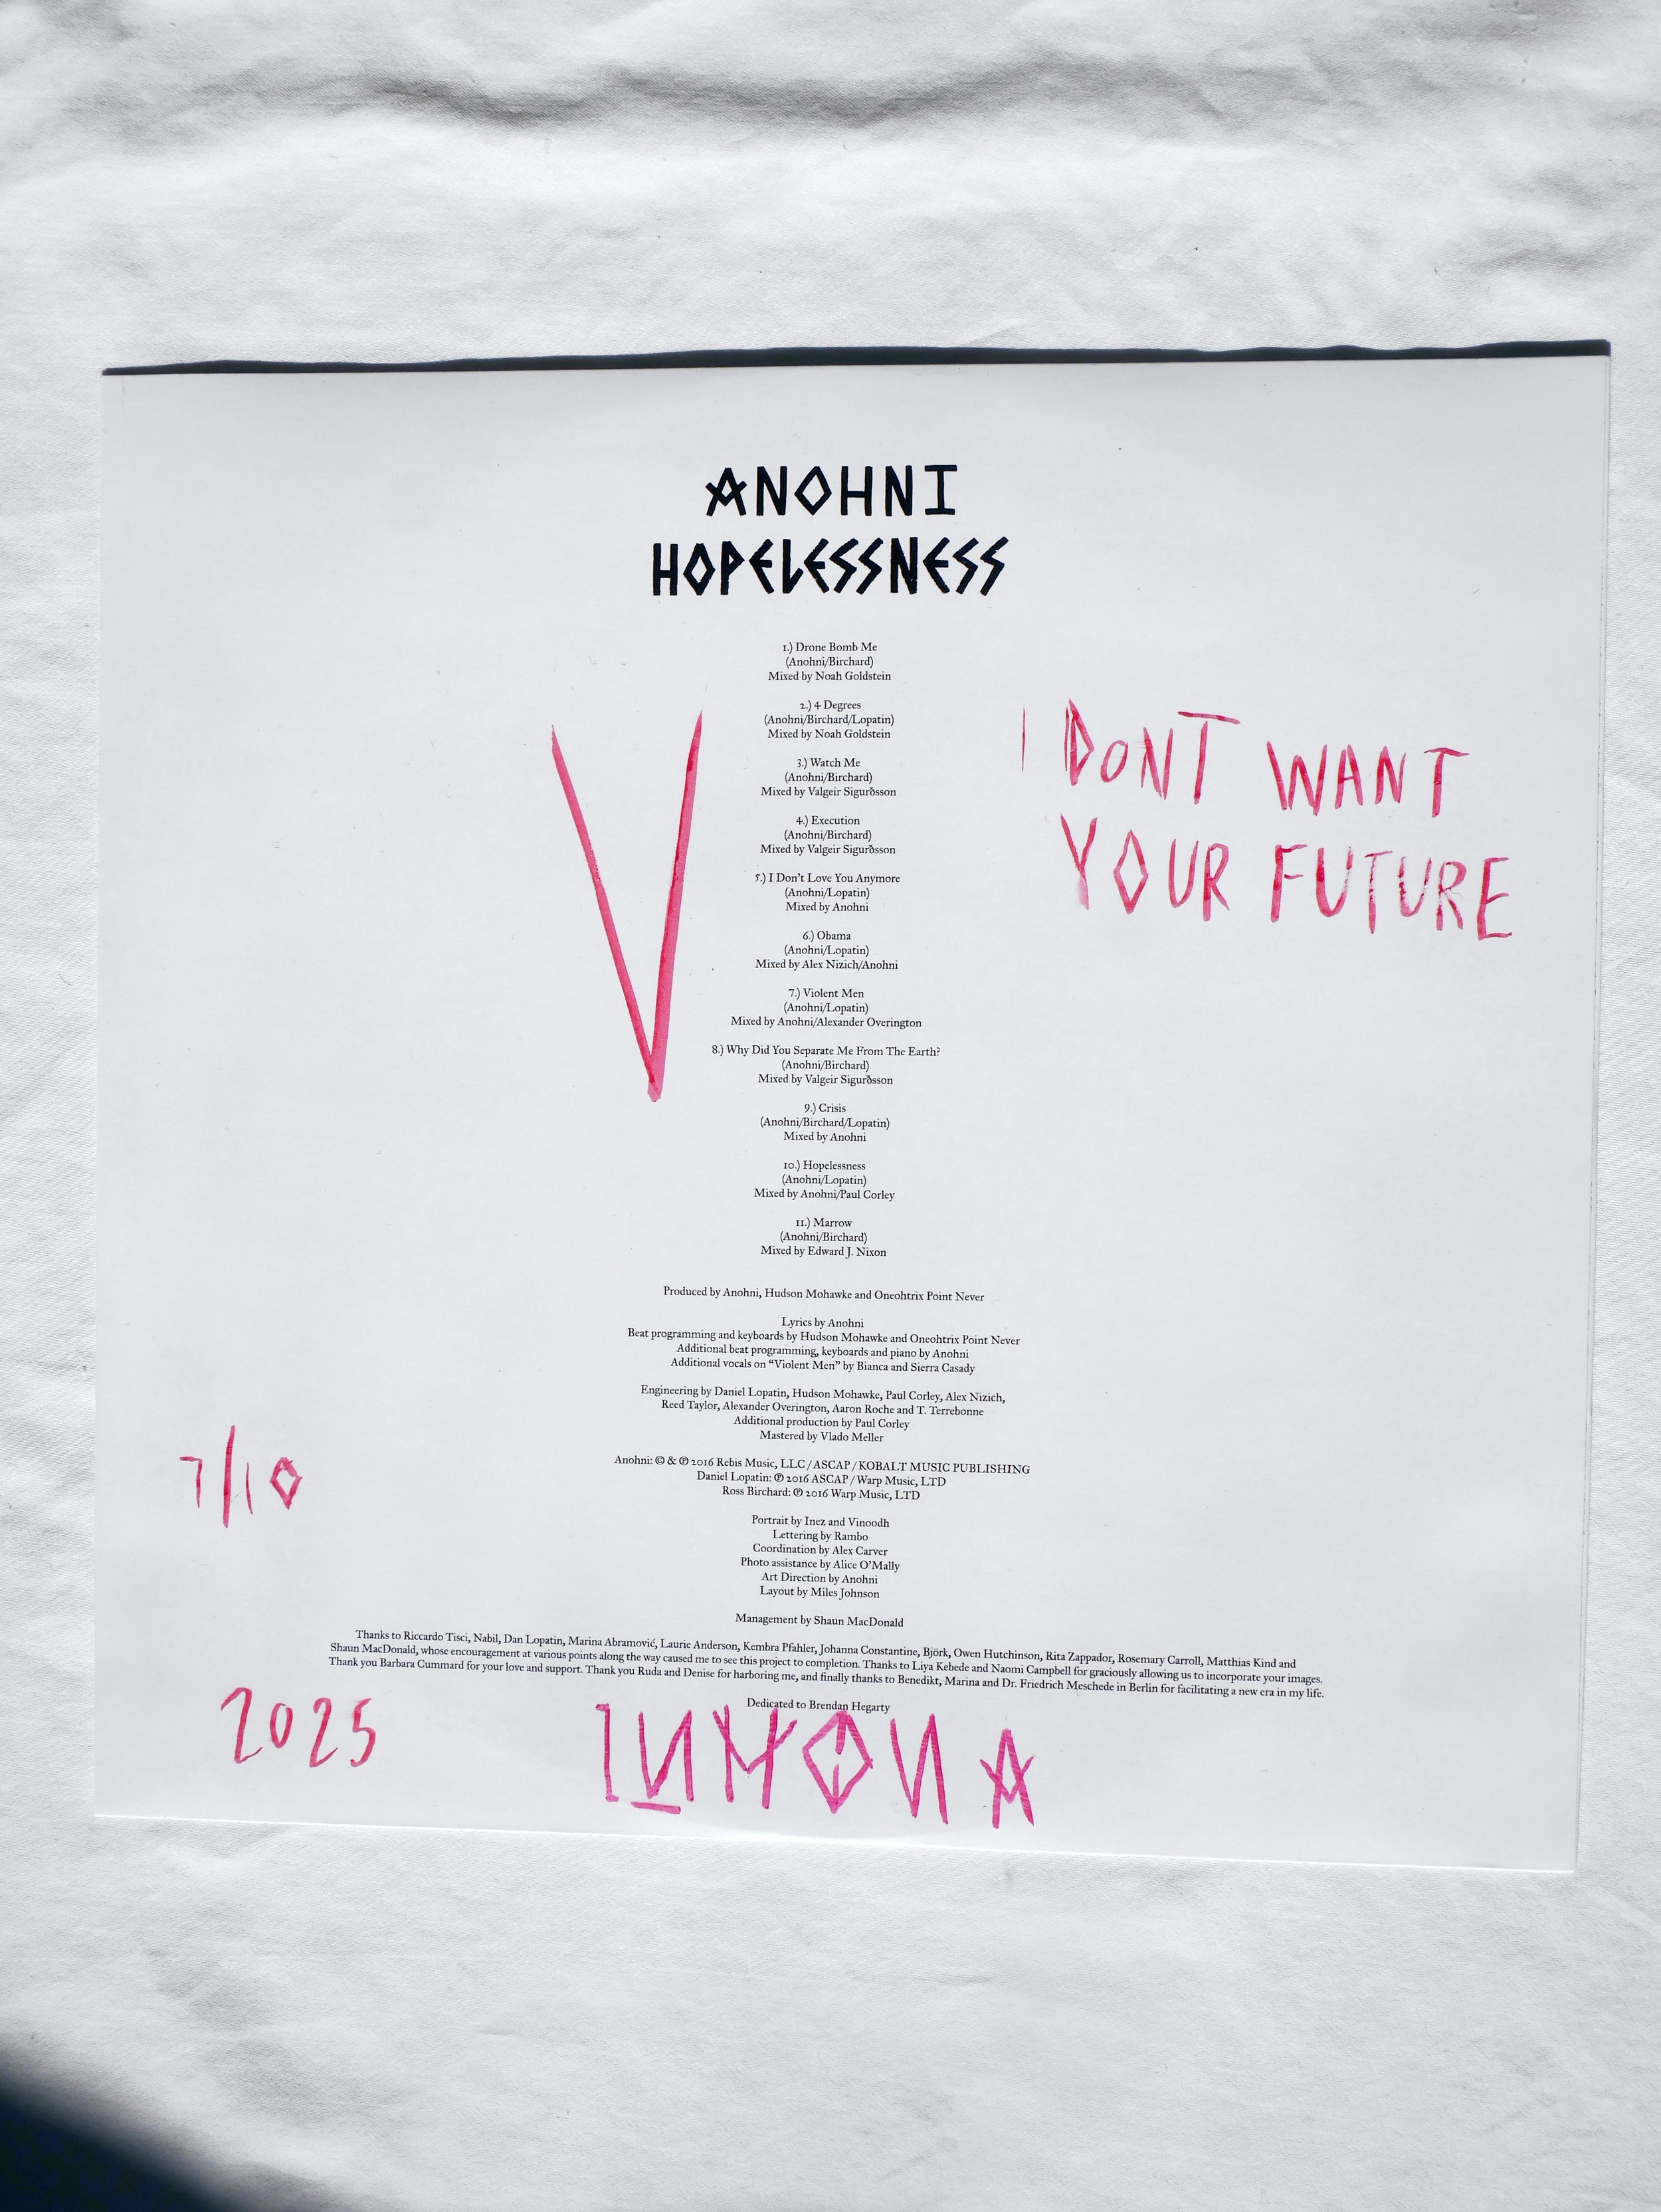 ANOHNI
HOPELESSNESS
1.) Drone Bomb Me
(Anohni/Birchard)
Mixed by Noah Goldstein
2.) 4 Degrees
(Anohni/Birchard/Lopatin)
Mixed by Noah Goldstein
3.) Watch Me
(Anohni/Birchard)
Mixed by Valgeir Sigurðsson
4.) Execution
(Anohni/Birchard)
Mixed by Valgeir Sigurðsson
5.) I Don't Love You Anymore
(Anohni/Lopatin)
Mixed by Anohni
6.) Obama
(Anohni/Lopatin)
Mixed by Alex Nizich/Anohni
7.) Violent Men
(Anohni/Lopatin)
Mixed by Anohni/Alexander Overington
8.) Why Did You Separate Me From The Earth?
(Anohni/Birchard)
Mixed by Valgeir Sigurðsson
9.) Crisis
(Anohni/Birchard/Lopatin)
Mixed by Anohni
10.) Hopelessness
(Anohni/Lopatin)
Mixed by Anohni/Paul Corley
11.) Marrow
(Anohni/Birchard)
Mixed by Edward J. Nixon
V
I DONT WANT
YOUR FUTURE
Produced by Anohni, Hudson Mohawke and Oneohtrix Point Never
Lyrics by Anohni
Beat programming and keyboards by Hudson Mohawke and Oneohtrix Point Never
Additional beat programming, keyboards and piano by Anohni
Additional vocals on “Violent Men” by Bianca and Sierra Casady
Engineering by Daniel Lopatin, Hudson Mohawke, Paul Corley, Alex Nizich,
Reed Taylor, Alexander Overington, Aaron Roche and T. Terrebonne
Additional production by Paul Corley
Mastered by Vlado Meller
Anohni: © & ℗ 2016 Rebis Music, LLC / ASCAP / KOBALT MUSIC PUBLISHING
Daniel Lopatin: ℗ 2016 ASCAP / Warp Music, LTD
Ross Birchard: ℗ 2016 Warp Music, LTD
7/10
Portrait by Inez and Vinoodh
Lettering by Rambo
Coordination by Alex Carver
Photo assistance by Alice O'Mally
Art Direction by Anohni
Layout by Miles Johnson
Management by Shaun MacDonald
Thanks to Riccardo Tisci, Nabil, Dan Lopatin, Marina Abramović, Laurie Anderson, Kembra Pfahler, Johanna Constantine, Björk, Owen Hutchinson, Rita Zappador, Rosemary Carroll, Matthias Kind and
Shaun MacDonald, whose encouragement at various points along the way caused me to see this project to completion. Thanks to Liya Kebede and Naomi Campbell for graciously allowing us to incorporate your images.
Thank you Barbara Cummard for your love and support. Thank you Ruda and Denise for harboring me, and finally thanks to Benedikt, Marina and Dr. Friedrich Meschede in Berlin for facilitating a new era in my life.
Dedicated to Brendan Hegarty
2025